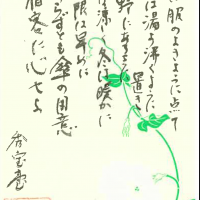 服のよきように点て
は湯の沸くように置き
野にあるように
涼しく冬は暖かに
限は早めに
らずとも傘の用意
相客に心せよ